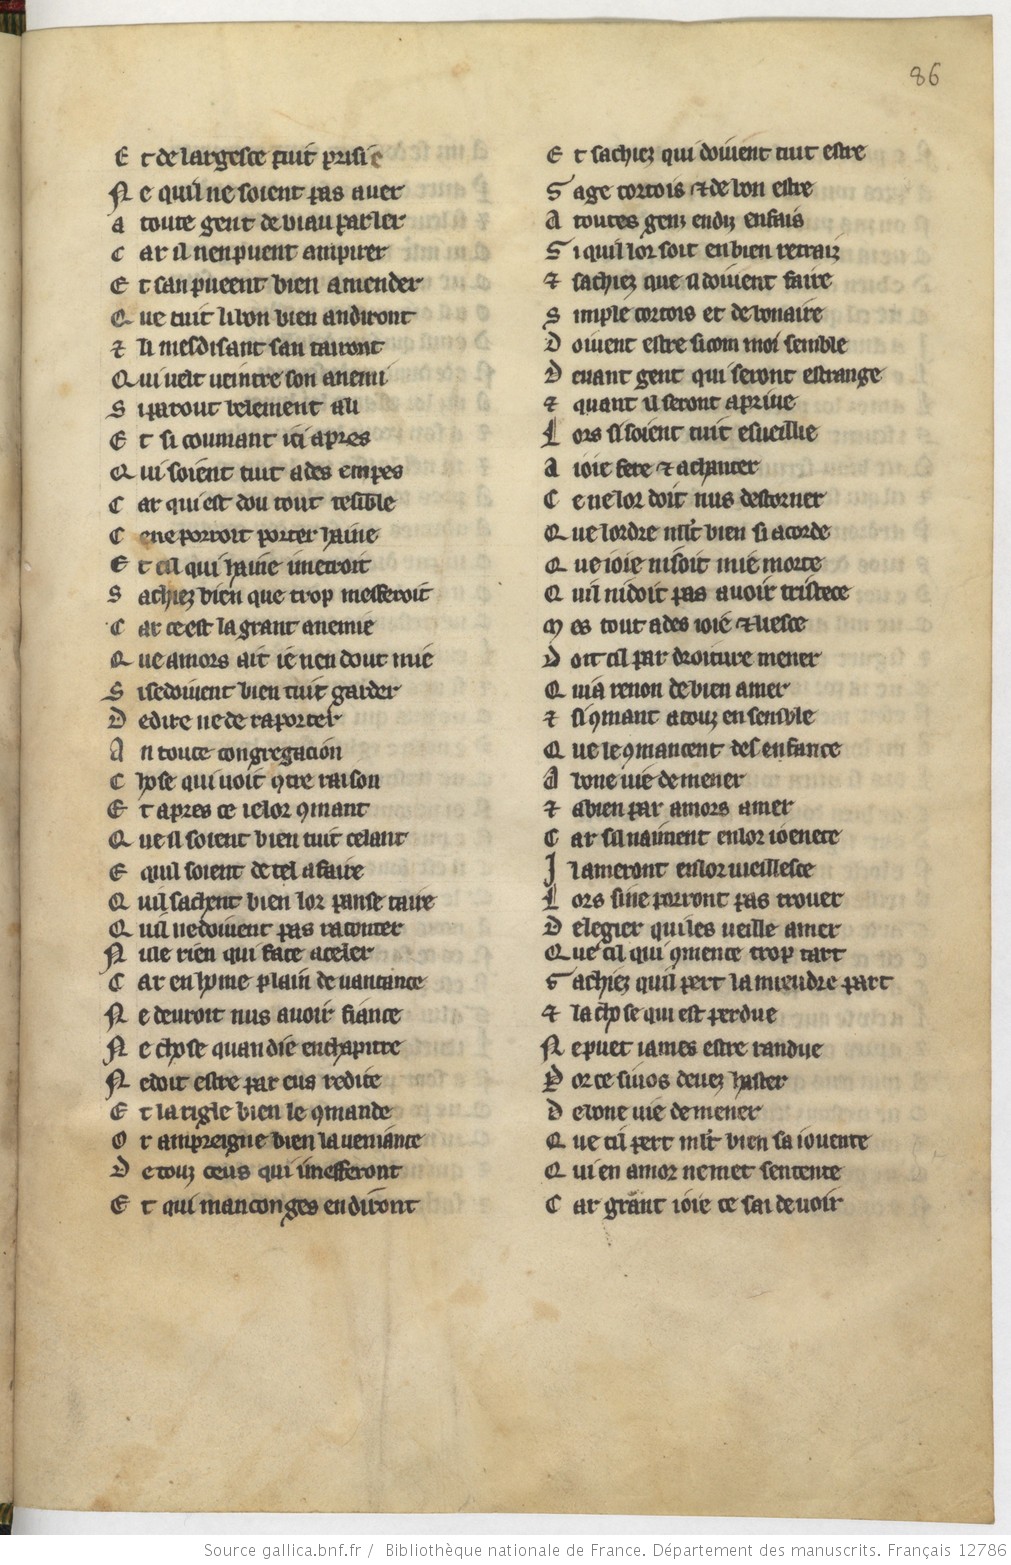 86
E t de largesce tuit prisie
N e quil ne soient pas auer
A toute gent de biau parler
C ar il nen puent ampirer
E t san pueent bien amender
Q ue tuit li bon bien andiront
⁊ li mesdisant san tairont
Q ui velt veintre son anemi
S i parout belement a li
E t si coumant ici apres
Q ui soient tuit ades empes
C ar qui est dou tout tesible
C ene porroit porter haine
E t cil qui haine i metroit
S achiez bien que trop mesferoit
C ar ce est la grant anemie
Q ue amors ait ie nen dout mie
S i se doiuent bien tuit garder
D e dire ne de raporter
A n toute congregacion
C hose qui uoit ꝯtre raison
E t apres ce ie lor ꝯmant
Q ue il soient bien tuit celant
E quil soient de tel afaire
Q uil sachent bien lor panse taire
Q uil ne doiuent pas raconter
N ule rien qui face a celer
C ar en home plain de uantance
N e deuroit nus auoir fiance
N e chose quan die en chapitre
N e doit estre par eus redite
E t la rigle bien le ꝯmande
O r ampreigne bien la veniance
D e touz ceus qui i mesferont
E t qui mançonges en diront
E t sachiez qui doiuent tuit estre
S age cortois ⁊ de bon estre
A toutes genz en diz en fais
S i quil lor soit en bien retraiz
⁊ sachiez que il doiuent faire
S imple cortois et de bonaire
D oiuent estre si com moi semble
D euant gent qui seront estrange
⁊ quant il seront a priue
L ors si soient tuit esueillie
A ioie fere ⁊ a chanter
C e ne lor doit nus destorner
Q ue lordre mlt bien si acorde
Q ue ioie ni soit mie morte
Q uil ni doit pas auoir tristece
M es tout ades ioie ⁊ liesce
D oit cil par droiture mener
Q ui a renon de bien amer
⁊ si ꝯmant a touz ensenble
Q ue le ꝯmancent des enfance
A bone uie demener
⁊ a bien par amors amer
C ar sil naiment en lor ioenece
I l ameront en lor uieillesce
L ors si ne porront pas trouer
D e legier qui les ueille amer
Q ue cil qui ꝯmence trop tart
S achiez quil pert la mieudre part
⁊ la chose qui est perdue
N e puet iames estre randue
P or ce si uos deuez haster
D e bone uie demener
Q ue cil pert mlt bien sa iouente
Q ui en amor ne met sentente
C ar grant ioie ce sai de uoir
Source gallica.bnf.fr / Bibliothèque nationale de France. Département des manuscrits. Français 12786